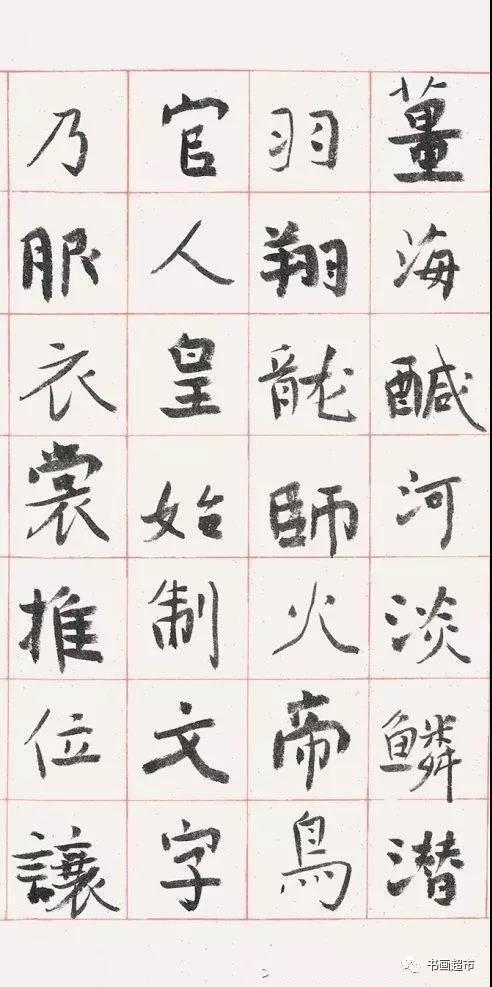 薑海醎河淡鳞潜
羽翔龍師火帝鳥
官人皇始制文字
乃服衣裳推位讓
书画超市